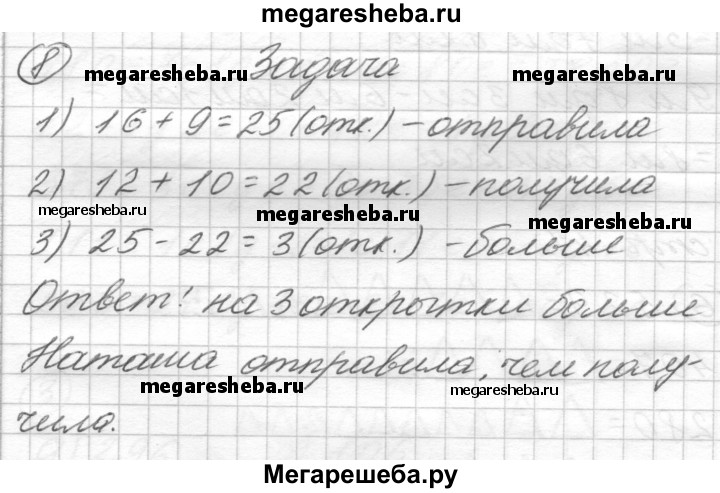 megaresheba.ru
8 Задача
megaresheba.ru megaresheba.ru
1) 16 + 9 = 25 (отк.) – отправила
2) 12 + 10 = 22 (отк.) – получила
megaresheba.ru megaresheba.ru megaresheba.ru
3) 25 - 22 = 3 (отк.) – больше
Ответ: на 3 открытки больше
Наташа отправила, чем полу-
megaresheba.ru megaresheba.ru
чила.
Мегарешеба.ру